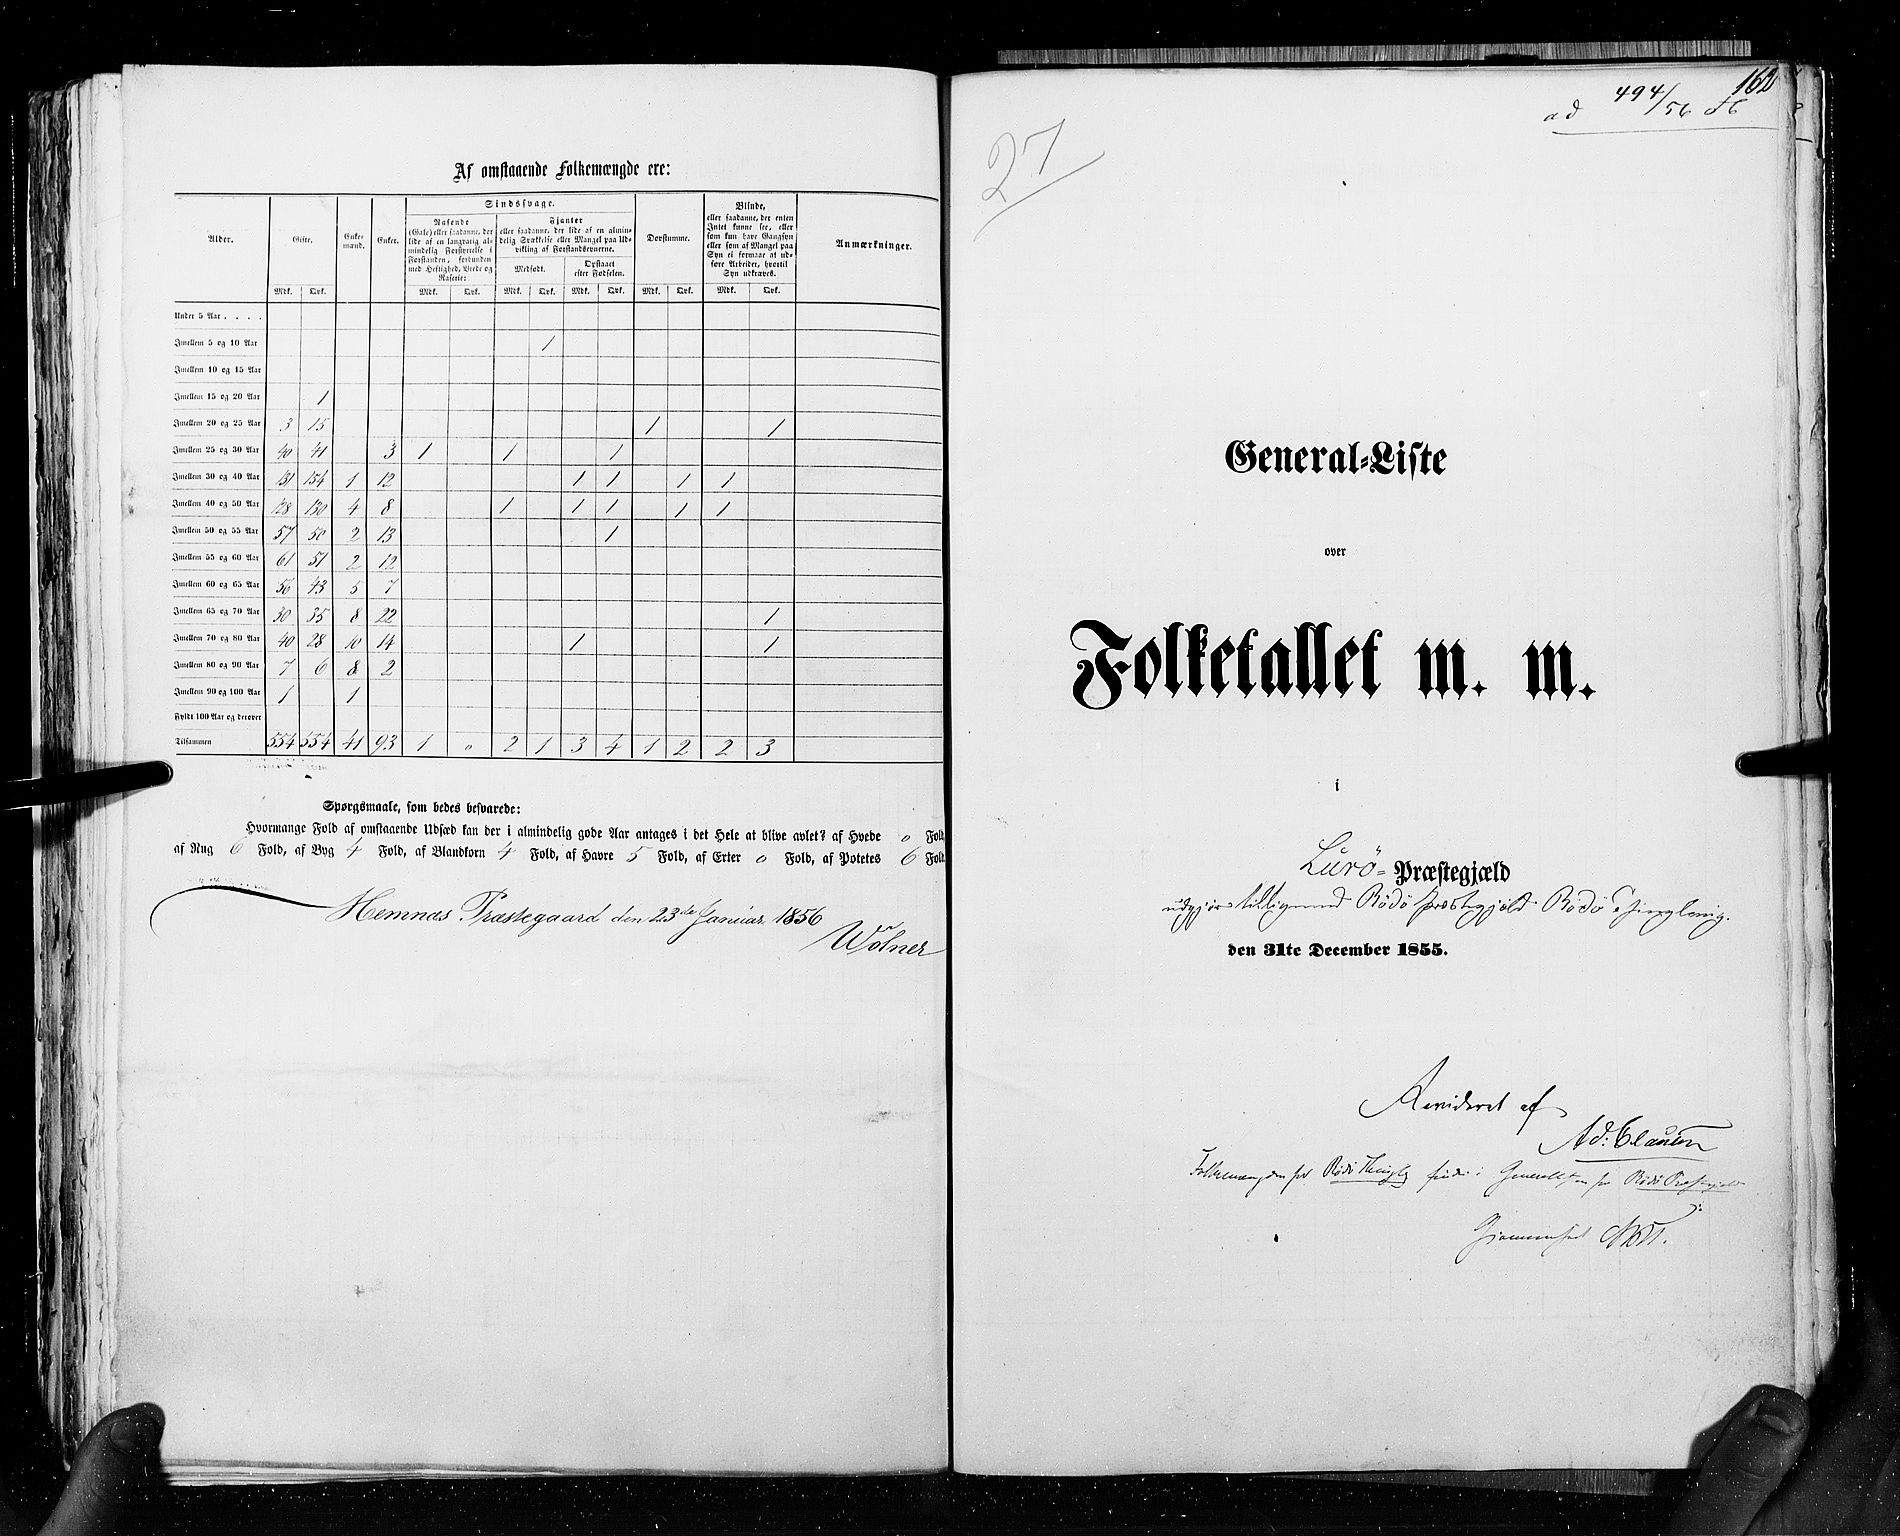 Af omstaaende Folkemængde ere:
Alder. Gifte. Enke-mænd. Enker. Sindssvage. Døvstumme. Blinde, eller saadanne, der enten Intet kunne see, eller som kun have Gangsyn eller som af Mangel paa Syn ei formaae at udføre Arbeider, hvortil Syn udkræves. Anmærkninger.
Rasende (Gale) eller saadanne, der lide af en langvarig almindelig Forstyrrelse i Forstanden, forbunden med Heftighed, Vrede og Raserie:
Fjanter eller saadanne, der lide af en almindelig Svækkelse eller Mangel paa Udvikling af Forstandsevnerne.
Medfødt. Opstaaet efter Fødselen.
Mdk. Qvk. Mdk. Qvk. Mdk. Qvk. Mdk. Qvk. Mdk. Qvk. Mdk. Qvk.
Under 5 Aar . . . .
Imellem 5 og 10 Aar 1
Imellem 10 og 15 Aar
Imellem 15 og 20 Aar 1
Imellem 20 og 25 Aar 3 15 1 1
Imellem 25 og 30 Aar 40 41 3 1 1 1
Imellem 30 og 40 Aar 131 154 1 12 1 1 1 1
Imellem 40 og 50 Aar 128 130 4 8 1 1 1 1 1
Imellem 50 og 55 Aar 57 50 2 13 1
Imellem 55 og 60 Aar 61 51 2 12
Imellem 60 og 65 Aar 56 43 5 7
Imellem 65 og 70 Aar 30 35 8 22 1
Imellem 70 og 80 Aar 40 28 10 14 1 1
Imellem 80 og 90 Aar 7 6 8 2
Imellem 90 og 100 Aar 1 1
Fyldt 100 Aar og derover
Tilsammen 554 554 41 93 1 0 2 1 3 4 1 2 2 3
Spørgsmaale, som bedes besvarede:
Hvormange Fold af omstaaende Udsæd kan der i almindelig gode Aar antages i det Hele at blive avlet? af Hvede 0 Fold,
af Rug 6 Fold, af Byg 4 Fold, af Blandkorn 4 Fold, af Havre 5 Fold, af Erter 0 Fold, af Potetes 6 Fold.
Hemnæs Præstegaard den 23de Januar 1856
Wolner
162
ad 494/56
27
General-Liste
over
Folketallet m. m.
i
Lurö Præstegjæld
Rödö Præstegjæld Rödö
den 31te December 1855.
Revideret af
Ad: Clausen
Folkemængden for Rödö findes i Generallisten for Rödö Præstegjeld
Gjennemseet